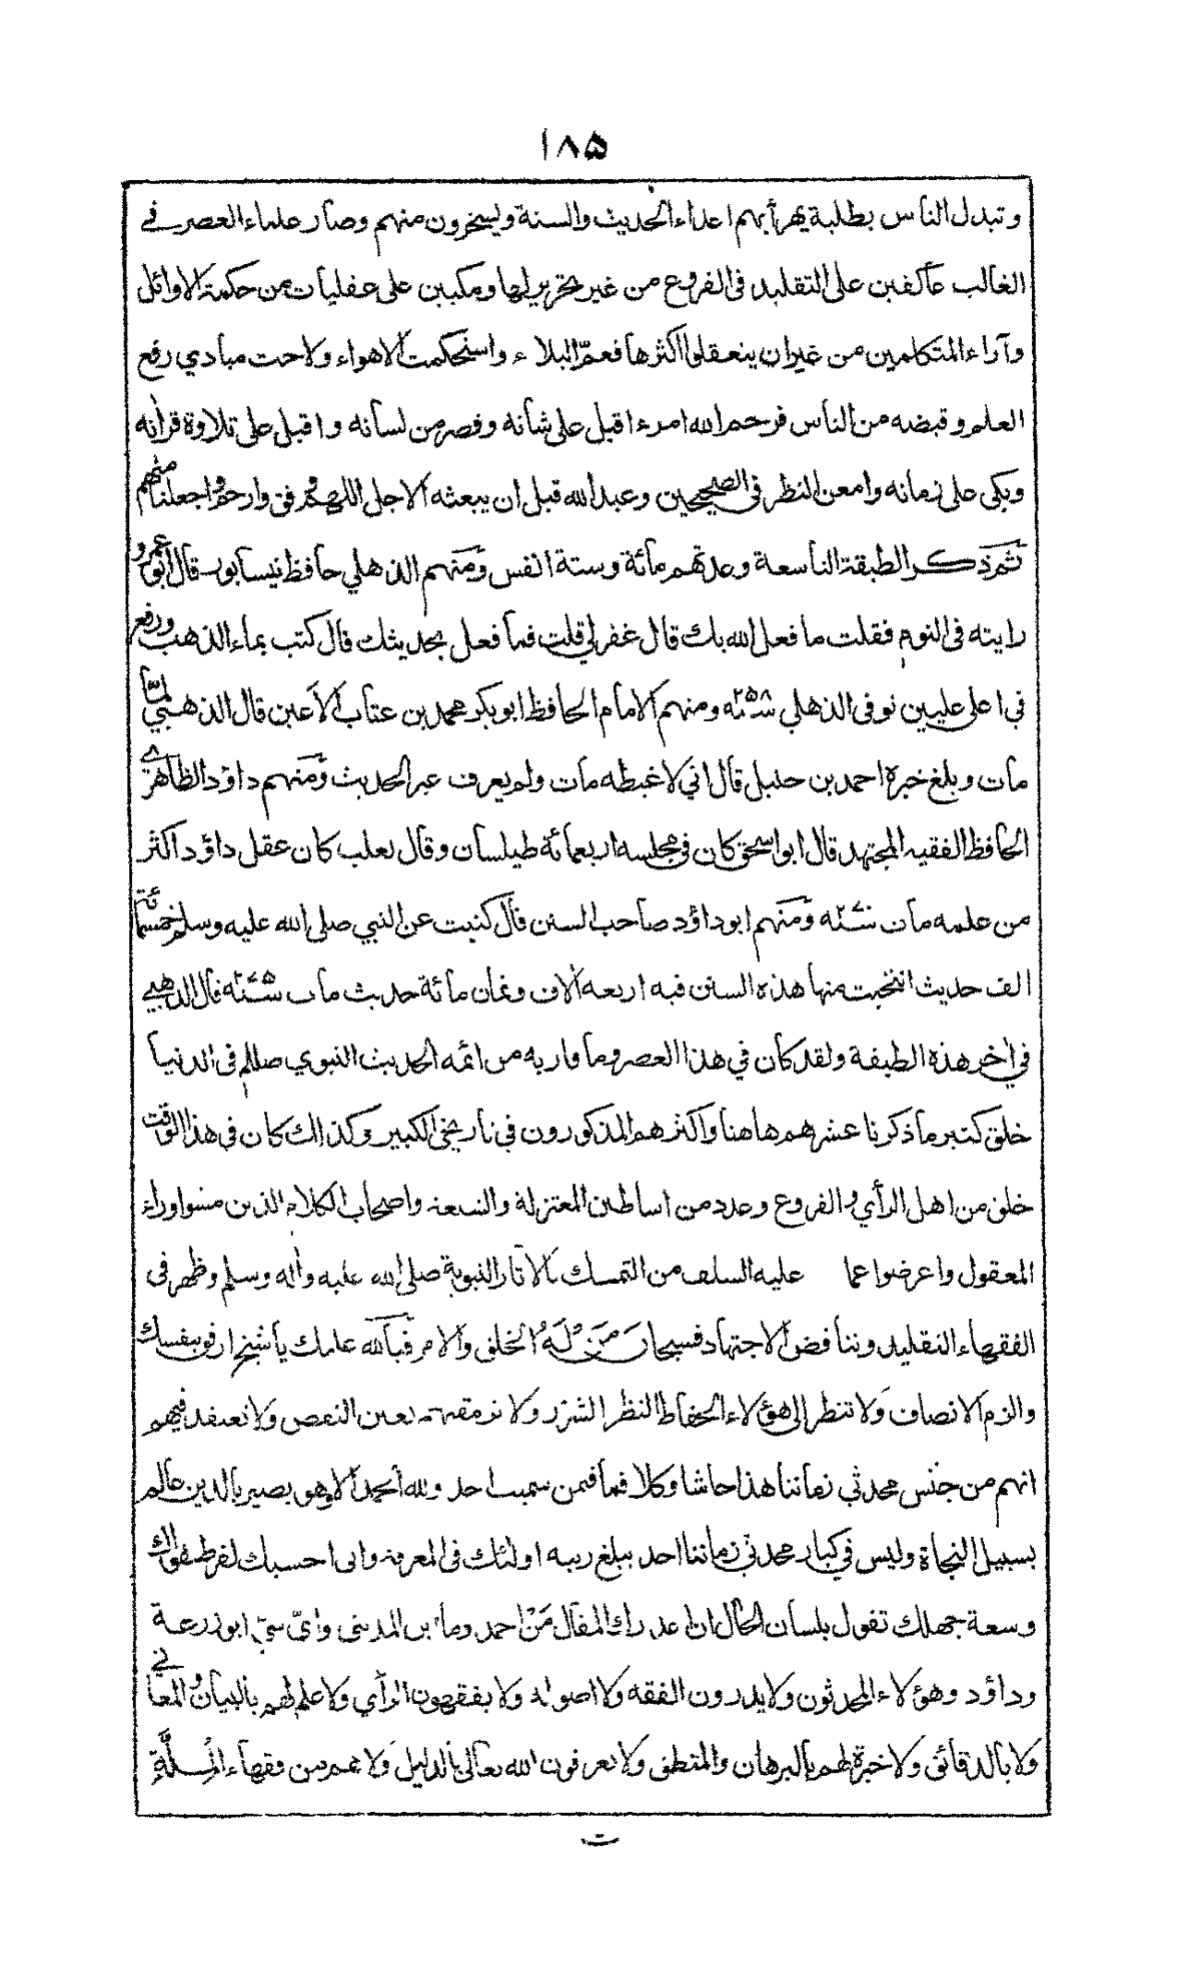 ١٨۵
وتبدل الناس بطلبة يهرأبهم اعداء الحديث والسنة ويسخرون منهم وصار علماء العصر في
الغالب عاكفين على التقليد فى الفروع من غير تحرير لها ومكبين على عقليات من حكمة الاوائل
وآراء المتكلمين من غيران يتعقلوا اكثرها فعمّ البلاء واستحكمت الاهواء ولاحت مبادي رفع
العلم وقبضه من الناس فرحم الله امرء اقبل على شأنه وقصر من لسانه واقبل على تلاوة قرانه
وبكى على زمانه وامعن النظر فى الصحيحين وعبد الله قبل ان يبغته الاجل اللهم فوفق وارحم واجعلنا منهم
ثم ذكر الطبقة التاسعة وعدتهم مائة وستة انفس ومنهم الذهلي حافظ نيسابور قال ابو عمرو
رايته فى النوم فقلت ما فعل الله بك قال غفر لي قلت فما فعل بحديثك قال كتب بماء الذهب ورفع
في اعلى عليين توفى الذهلي ٢٥٨ سنه ومنهم الامام الحافظ ابو بكر محمد بن عتاب الاعين قال الذهبي لمّا
مات وبلغ خبره احمد بن حنبل قال اني لاغبطه مات ولم يعرف غير الحديث ومنهم داؤد الظاهري
الحافظ الفقيه المجتهد قال ابو اسحق كان في مجلسه اربعمائة طيلسان وقال ثعلب كان عقل داؤد اكثر
من علمه مات ٢٧٠ سنه ومنهم ابو داؤد صاحب السنن قال كتبت عن النبي صلى الله عليه وسلم خمسمائة
الف حديث انتخبت منها هذه السنن فيه اربعه آلاف وثمان مائة حديث مات ٢٧٥ سنه قال الذهبي
في اخر هذه الطبقة ولقد كان في هذا العصر وما قاربه من ائمه الحديث النبوي صللم فى الدنيا
خلق كثير ما ذكرنا عشرهم هاهنا واكثرهم المذكورون في تاريخى الكبير وكذالك كان فى هذا الوقت
خلق من اهل الرأي والفروع وعدد من اساطين المعتزلة والشيعه واصحاب الكلام الذين مشوا وراء
المعقول واعرضوا عما عليه السلف من التمسك بالاثار النبوية صلى الله عليه واله وسلم وظهر فى
الفقهاء التقليد وتناقض الاجتهاد فسبحان من له الخلق والامر فبالله عليك يا شيخ ارفق بنفسك
والزم الانصاف ولا تنظر الى هؤلاء الحفاظ النظر الشزر ولا ترمقهم بعين النقص ولا تعتقد فيهم
انهم من جنس محدثي زماننا هذا حاشا وكلا فما فمن سميت احد ولله الحمد الا وهو بصير بالدين عالم
بسبيل النجاة وليس في كبار محدثي زماننا احد يبلغ رتبه اولئك فى المعرفة وانى احسبك لفرط هواك
وسعة جهلك تقول بلسان الحال ان اعدرك المقال مَنْ احمد وما ابن المدينى وايّ شئ ابو زرعة
وداؤد وهؤلاء المحدثون ولا يدرون الفقه ولا اصوله ولا يفقهون الرأي ولا علم لهم بالبيان والمعاني
ولا بالدقائق ولا خبرة لهم بالبرهان والمنطق ولا يعرفون الله تعالى بالدليل ولا هم من فقهاء المسلَّةِ
ت